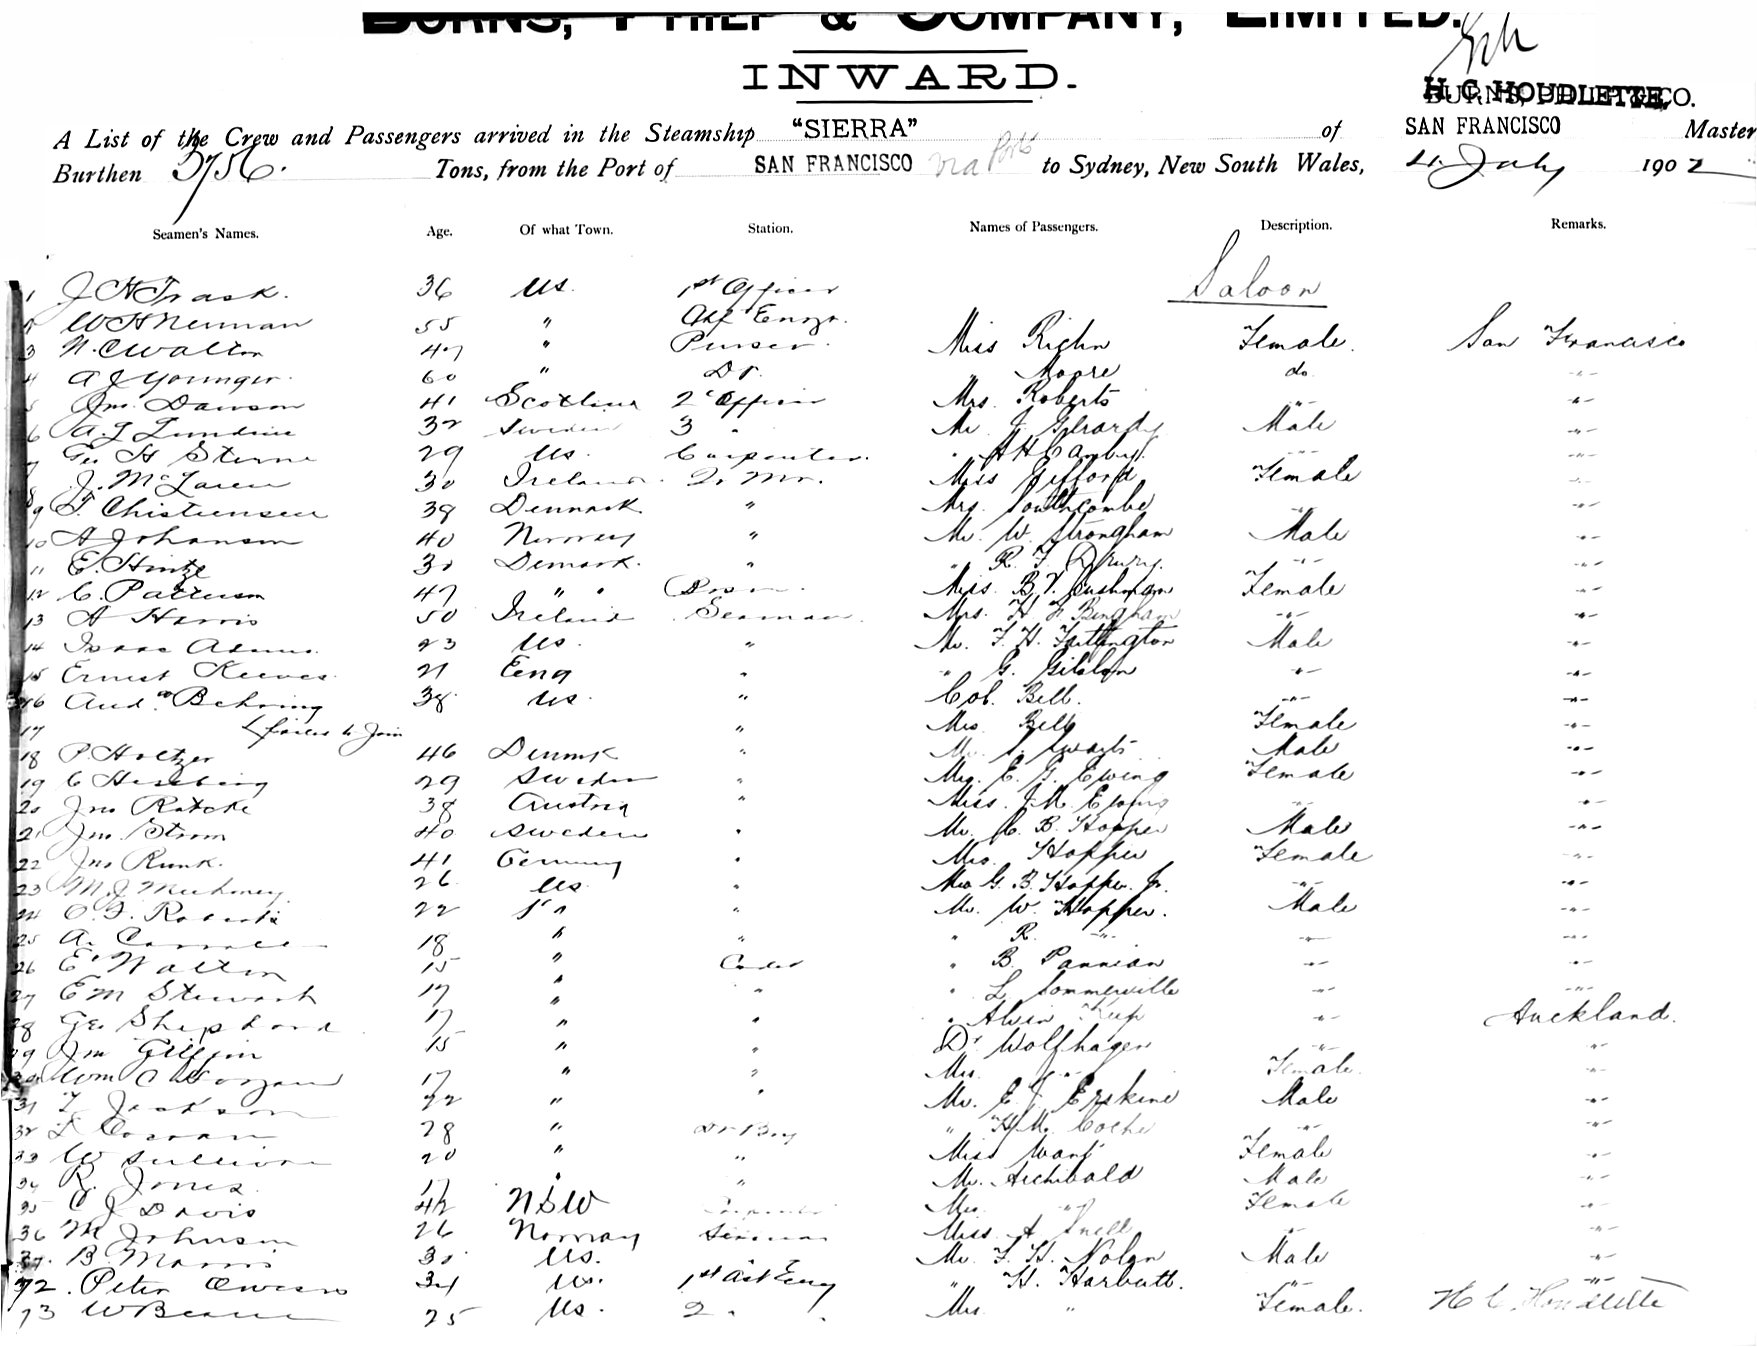 BURNS, PHILP & COMPANY, LIMITED.
INWARD.
H. C. HOUDLETTE,
A List of the Crew and Passengers arrived in the Steamship "SIERRA" of SAN FRANCISCO Master
Burthen 5756. Tons, from the Port of SAN FRANCISCO via Ports to Sydney, New South Wales, 4 July 1902
Seamen's Names. Age. Of what Town. Station. Names of Passengers. Description. Remarks.
Saloon
1 J H Trask. 36 US. 1st Officer
W H Neuman 55 " Chf Engr.
3 N. C Walton 47 " Purser. Miss Female. San Francisco
4 A J Younger. 60 " Dr. " Moore do. -"-
5 Jno. Dawson 41 Scotland 2d Officer Mrs. Roberts -"- -"-
6 A. J Lundine 32 Sweden 3 " Mr J. Male -"-
7 Geo H Sterne 29 US. Carpenter. " -"- -"-
8 J. McLaren 30 Ireland. Q. Mr. Miss Gifford Female -"-
9 F. Christiensen 39 Denmark " Mrs. Southcombe -"- -"-
10 A Johansen 40 Norway " Mr. W. Strongham Male -"-
11 E. Hintze 30 Demark. " " R. J. Drury. -"- -"-
12 C. Patterson 47 " " Bosn. Miss. B. V. Bushman Female -"-
13 A Harris 50 Ireland Seaman. Mrs. H Bingham -"- -"-
14 Isaac Adams. 23 US. " Mr. F. H. Male -"-
15 Ernest Reeves. 21 Eng " " G. -"- -"-
16 Aud. Behring 38 US. " Col. Bell. -"- -"-
17 failed to Join " Mrs Bell Female -"-
18 P. Holtzer 46 Denmk " Mr Male -"-
19 C 29 Sweden " Mrs. E. G. Ewing Female -"-
20 Jno Ratcke 38 Austria " Miss. J. M. -"- -"-
21 Jno. Strom 40 Sweden " Mr. C. B. Hopper Male -"-
22 Jno Runk. 41 Germany " Mrs. Hopper Female -"-
23 M. J. 26 US. " Mrs G. B. Hopper. Jr. -"- -"-
24 C. F. Roberts 22 " " Mr. W. Hopper. Male -"-
25 A. 18 " " " R. -"- -"- -"-
26 E Walton 15 " Cadet " B. Pannian -"- -"-
27 E M Stewart 17 " " " L Sommerville -"- -"-
28 Geo Shephard 17 " " " Alvin -"- Auckland.
29 Jno Giffin 15 " " Dr Wolfhagen -"- -"-
30 Wm C Morgan 17 " " Mrs. -"- Female. -"-
31 T Jackson 22 " " Mr. E. J. Erskine Male -"-
32 28 " " H. M. -"- -"-
33 W Sullivan 20 " " Miss Want Female -"-
34 R. Jones. 17 " " Mr. Archibald Male -"-
35 C J Davis 42 NSW Mrs. -"- Female -"-
36 M Johnson 26 Norway Seaman Miss. A Snell -"- -"-
37. B Morris 30 US. Mr. F. H. Nolan Male -"-
72. Peter Owens 34 US. 1st Ast Eng " H. Harbutt. -"- -"-
73 W Beane 25 US. 2 " Mrs. " Female. H C Houdlette